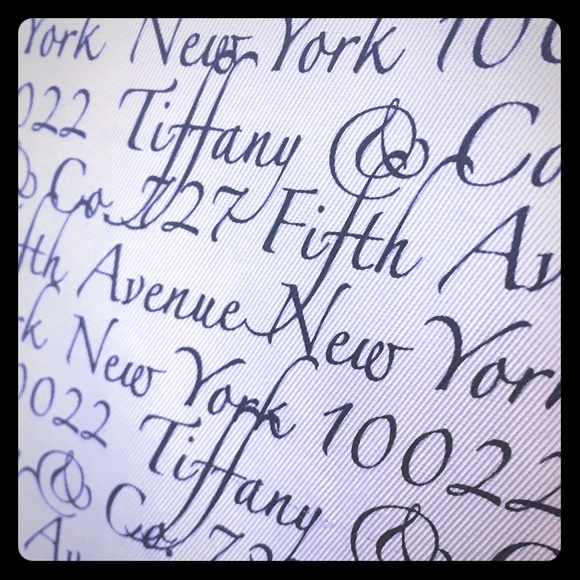 York New York 100
022 Tiffany & Co
& Co. 727 Fifth Av
fth Avenue New York
rk New York 10022
0022 Tiffany &
& Co. 727
Av